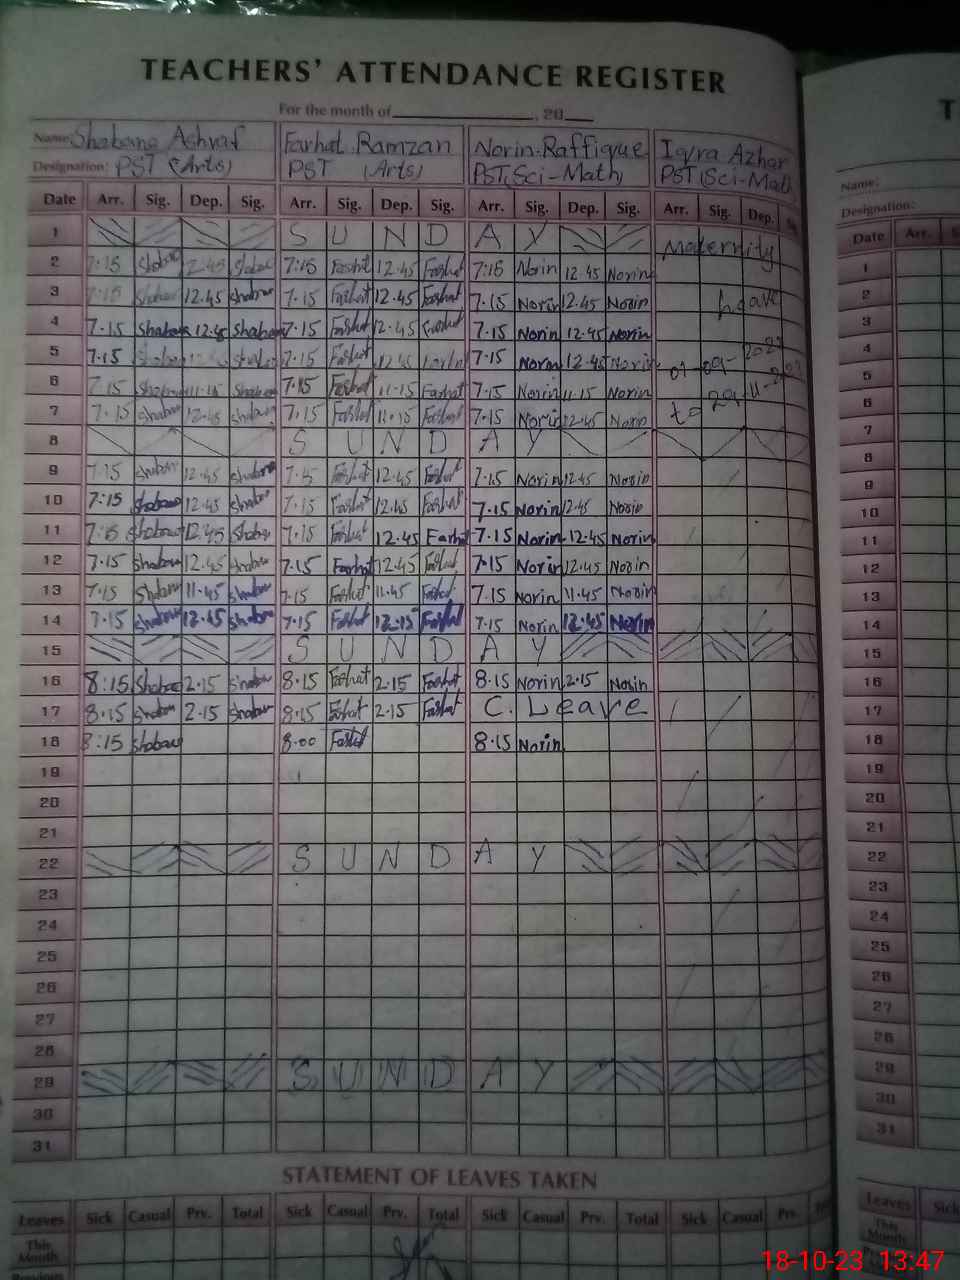 TEACHERS' ATTENDANCE REGISTER
For the month of ________, 20__
Name: Shabana Ashraf Farhat Ramzan Norin Raffique Iqra Azhar
Designation: PST (Arts) PST (Arts) PST(Sci-Math) PST(Sci-Math
Date Arr. Sig. Dep. Sig. Arr. Sig. Dep. Sig. Arr. Sig. Dep. Sig. Arr. Sig. Dep.
1 S U N D A Y Maternity
2 7:15 Shabana 12.45 Shabana 7:15 Farhat 12.45 Farhat 7:15 Norin 12.45 Norin
3 7:15 Shabana 12.45 Shabana 7.15 Farhat 12.45 Farhat 7.15 Norin 12.45 Norin leave
4 7.15 Shabana 12.45 Shabana 7.15 Farhat 12.45 Farhat 7.15 Norin 12.45 Norin
5 7.15 Shabana 12.45 Shabana 7.15 Farhat 12.45 Farhat 7.15 Norin 12.45 Norin 01-09-2023
6 7.15 Shabana 11.15 Shabana 7.15 Farhat 11.15 Farhat 7.15 Norin 11.15 Norin to 29-11-2023
7 7.15 Shabana 12.45 Shabana 7.15 Farhat Farhat 7.15 Norin 12.45 Norin
8 S U N D A Y
9 7.15 Shabana 12.45 Shabana Farhat 12.45 Farhat 7.15 Norin 12.45 Norin
10 7:15 Shabana 12.45 Shabana 7.15 Farhat 12.45 Farhat 7.15 Norin 12.45 Norin
11 7:15 Shabana 12.45 Shabana 7.15 Farhat 12.45 Farhat 7.15 Norin 12.45 Norin
12 7.15 Shabana 12.45 Shabana 7.15 Farhat 12.45 Farhat 7.15 Norin 12.45 Norin
13 7.15 Shabana 11.45 Shabana 7.15 Farhat 11.45 Farhat 7.15 Norin 11.45 Norin
14 7.15 Shabana 12.45 Shabana 7.15 Farhat Farhat 7.15 Norin 12.45 Norin
15 S U N D A Y
16 8:15 Shabana 2.15 Shabana 8.15 Farhat 2.15 Farhat 8.15 Norin 2.15 Norin
17 8.15 Shabana 2.15 Shabana 8.15 Farhat 2.15 Farhat C. Leave
18 8:15 Shabana 8.00 Farhat 8.15 Norin
19
20
21
22 S U N D A Y
23
24
25
26
27
28
29 S U N D A Y
30
31
STATEMENT OF LEAVES TAKEN
Leaves Sick Casual Prv. Total Sick Casual Prv. Total Sick Casual Prv. Total Sick Casual Prv.
This Month
Previous
T
Name:
Designation:
Date Arr.
1
2
3
4
5
6
7
8
9
10
11
12
13
14
15
16
17
18
19
20
21
22
23
24
25
26
27
28
29
30
31
Leaves Sick
This Month
18-10-23 13:47